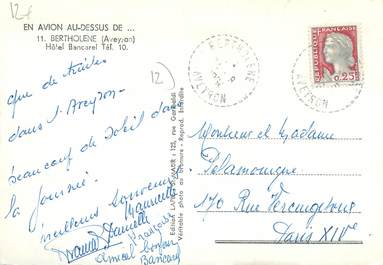 12
EN AVION AU-DESSUS DE ...
11. BERTHOLENE (Aveyron)
Hôtel Bancarel Tél. 10.
12
que de truites
dans l'Aveyron
beaucoup de soleil dans
la journée.
meilleurs souvenirs
Danielle
Françoise
amical bonjour
Bancarel
BERTHOLENE
AVEYRON
AVEYRON
REPUBLIQUE FRANÇAISE
0,25
Véritable photo au bromure - Reprod. interdite
Monsieur et Madame
Pelamourgue
170 Rue Vercingétorix
Paris XIVe